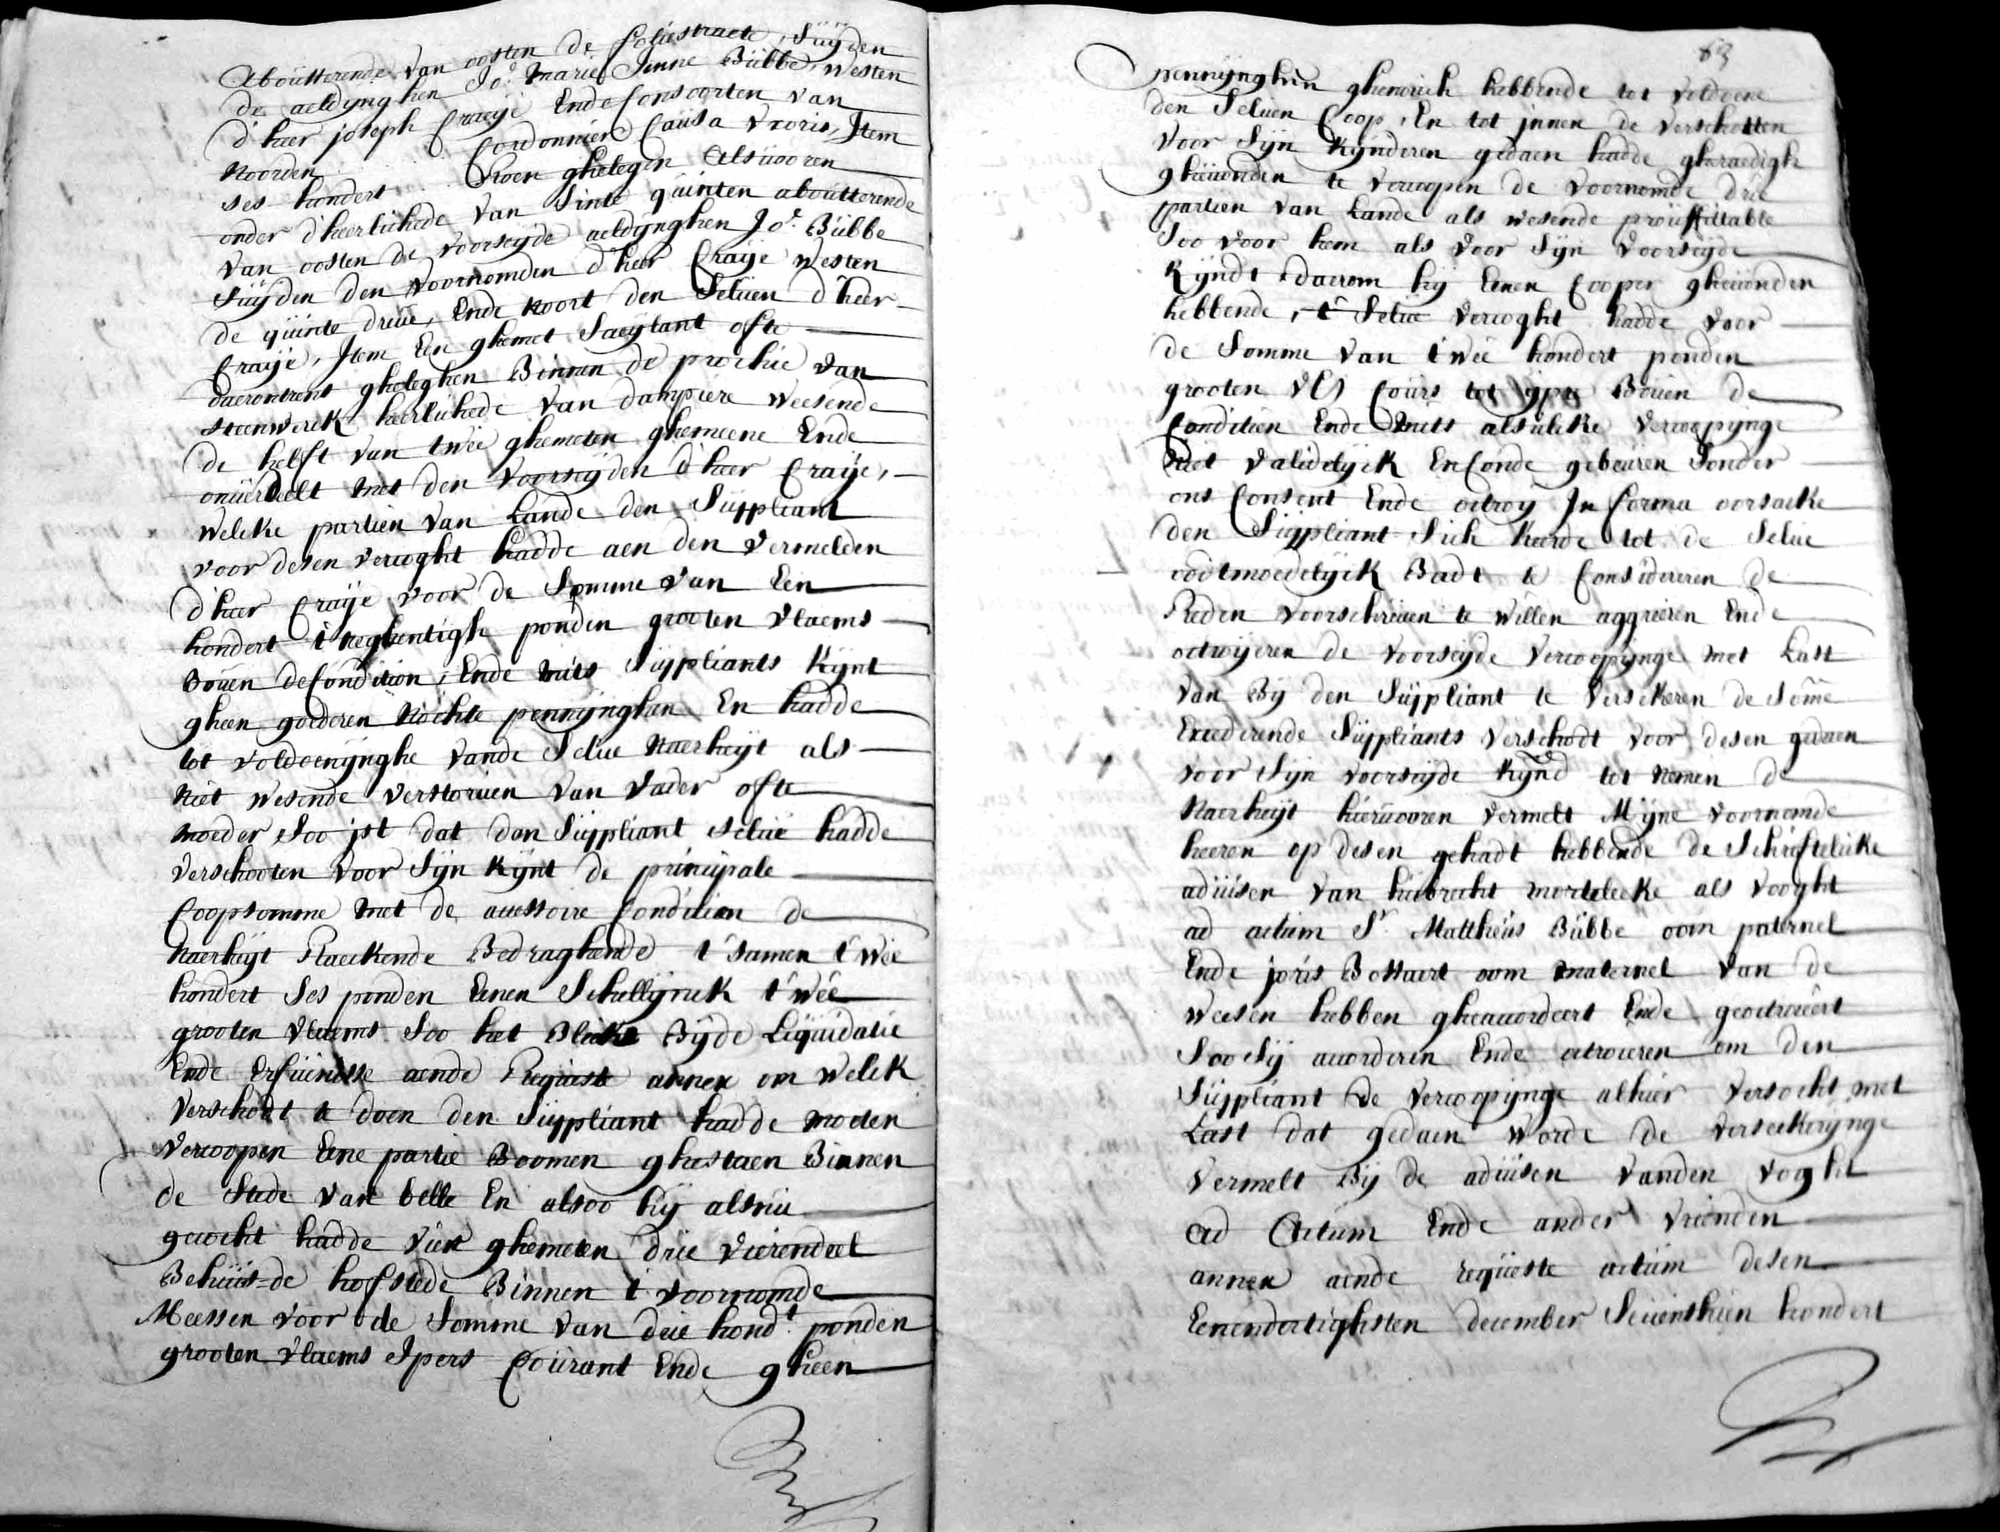 Aboutterende van oosten de Coliestraete, Suyden
de aeldynghen Jo.e Marie Jenne Bubbe, westen
d'heer joseph Craeye Ende Consoorten van
Noorden Cordonnier Causa Uxoris, Item
ses hondert Roen gheleghen Alsvooren
onder d'heerlichede van Sinte quinten aboutterende
van oosten de voorseyde aeldynghen Jo.e Bubbe
Suyden den voornomden d'heer Craije westen
de quinte dreve, Ende noort den Selven d'heer
Craije, Item Een ghemet Saeylant ofte
daerontrent gheleghen Binnen de prochie van
Steenwerck heerlichede van dampiere weesende
de helft van twee ghemeten ghemeene Ende
onverdeelt met den voorseyden d'heer Craije,
welcke partien van Lande den Suppliant
voor desen vercoght hadde aen den vermelden
d'heer Craije voor de Somme van Een
hondert t'neghentigh ponden grooten vlaems
Boven de Condition, Ende mits Suppliants Kynt
gheen goederen nochte pennynghen En hadde
tot voldoenynghe vande Selve naerheyt als
niet wesende verstorven van vader ofte
moeder Soo ist dat den Suppliant selve hadde
verschooten voor Sijn Kynt de principale
Coopsomme met de accessoire Condition de
naerheyt Raeckende Bedraghende t'samen t'wee
hondert Ses ponden Eenen Schellynck t'wee
grooten vlaems Soo het Blickt Byde Liquidatie
Ende Erfvenisse aende Requeste annex om welck
verschodt te doen den Suppliant hadde moeten
vercoopen Eene partie Boomen ghestaen Binnen
de Stede van belle En alsoo hij alsnu
gecocht hadde vier ghemeten drie vierendeel
Behuus=de hofstede Binnen t'voornomde
Meessen voor de Somme van drie hond.t ponden
grooten vlaems Ipers Courant Ende gheen
63
pennynghen ghenouch hebbende tot voldoene
den Selven Coop, En tot innen de verschotten
voor Sijn Kynderen gedaen hadde gheraedigh
ghevonden te vercoopen de voornomde drie
partien van Lande als wesende prouffittable
Soo voor hem als voor Sijn voorseyde
Kyndt daerom hij Eenen Cooper ghevonden
hebbende, t'Selve vercoght hadde voor
de Somme van twee hondert ponden
grooten vls Cours tot ypre Boven de
Condition Ende Mits alsulcke vercoopynge
niet validelyck En Conde gebeuren Sonder
ons Consent Ende octroy In forma oorsaecke
den Suppliant Sich keerde tot de Selve
ootmoedelyck Badt te Considereren de
Reden voorschreven te willen aggreeren Ende
octroyeren de voorseyde vercoopynge met Last
van Bij den Suppliant te verseckeren de Somme
Excederende Suppliants verschodt voor desen gedaen
voor Sijn voorseyde Kynd tot nemen de
Naerheyt hiervooren vermelt Mijne voornomde
heeren op desen gehadt hebbende de Schriftelicke
advisen van hubrecht mortelecke als vooght
ad actum S.r Mattheus Bubbe oom paternel
Ende joris Bottaert oom maternel van de
weesen hebben gheaccordeert Ende geoctroieert
Soo Sij accorderen Ende octroieren om den
Suppliant de vercoopynge alhier versocht met
Last dat gedaen worde de verseekerynge
vermelt Bij de advisen vanden voght
ad Actum Ende ander vrienden
annex aende requeste actum desen
Eenendertighsten december Seventhien hondert